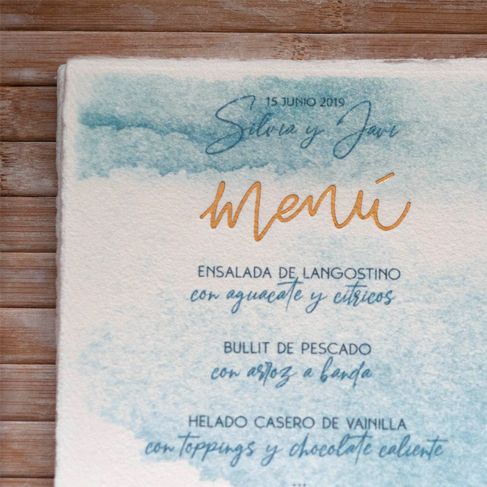 15 JUNIO 2019
Silvia y Javi
menú
ENSALADA DE LANGOSTINO
con aguacate y cítricos
BULLIT DE PESCADO
con arroz a banda
HELADO CASERO DE VAINILLA
con toppings y chocolate caliente
...